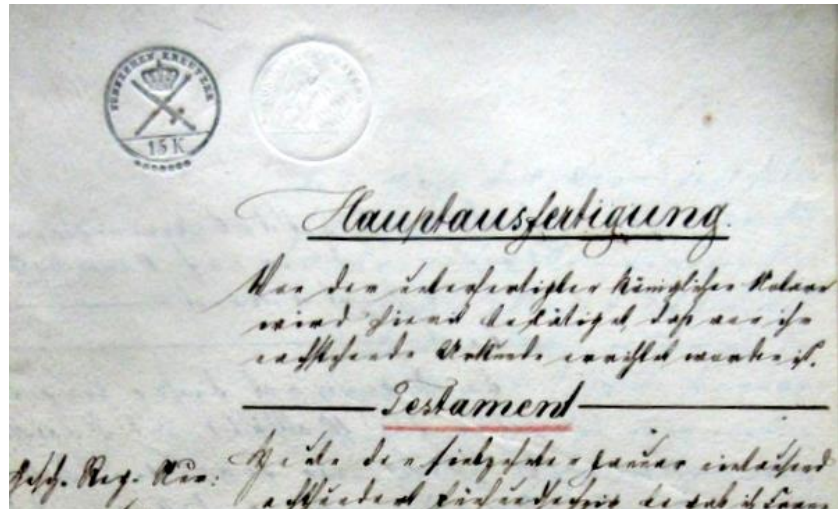 FÜNFZEHN KREUTZER
15 K
Hauptausfertigung.
Von dem unterfertigten königlichen Notare
wird hiemit bestätigt, daß vor ihm
nachstehende Urkunde errichtet worden ist.
Testament
Gesch. Reg. Nro:
Heute den siebzehnten Januar eintausend
achthundert fünfundsechzig begab ich